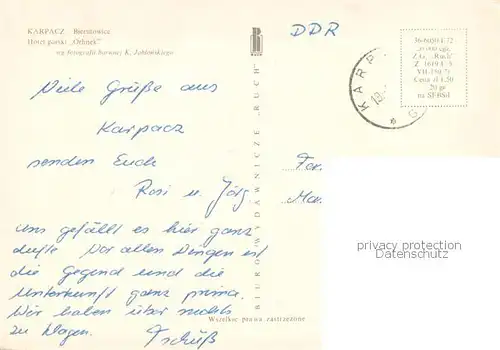 KARPACZ Bierutowice
Hotel górski „Orlinek”
wg fotografii barwnej K. Jabłońskiego
Viele Grüße aus
Karpacz
senden Euch
Rosi u. Jörg.
Uns gefällt es hier ganz
dufte. Vor allen Dingen ist
die Gegend und die
Unterkunft ganz prima.
Wir haben über nichts
zu klagen.
Tschüß
BIURO WYDAWNICZE „RUCH”
Wszelkie prawa zastrzeżone
DDR
KARP
Fa.
Ma.
36-6050 I/72
Z.G. „Ruch”
Z. 1619
VII-150 71
Cena zł 1,50
20 gr
na SFBSiI
privacy protection
Datenschutz